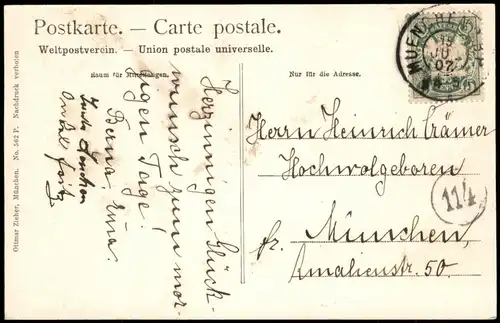 Postkarte. — Carte postale.
Weltpostverein. — Union postale universelle.
Raum für Mitteilungen.
Nur für die Adresse.
Herzinnigen Glück-
wunsch zum mor-
gigen Tage!
Berna, Irma.
Onkel Fritz
Herrn Heinrich Crämer
Hochwolgeboren
fr. München,
Amalienstr. 50.
114
MUENCHEN
BAYERN
5
Ottmar Zieher, München. No. 562 P. Nachdruck verboten